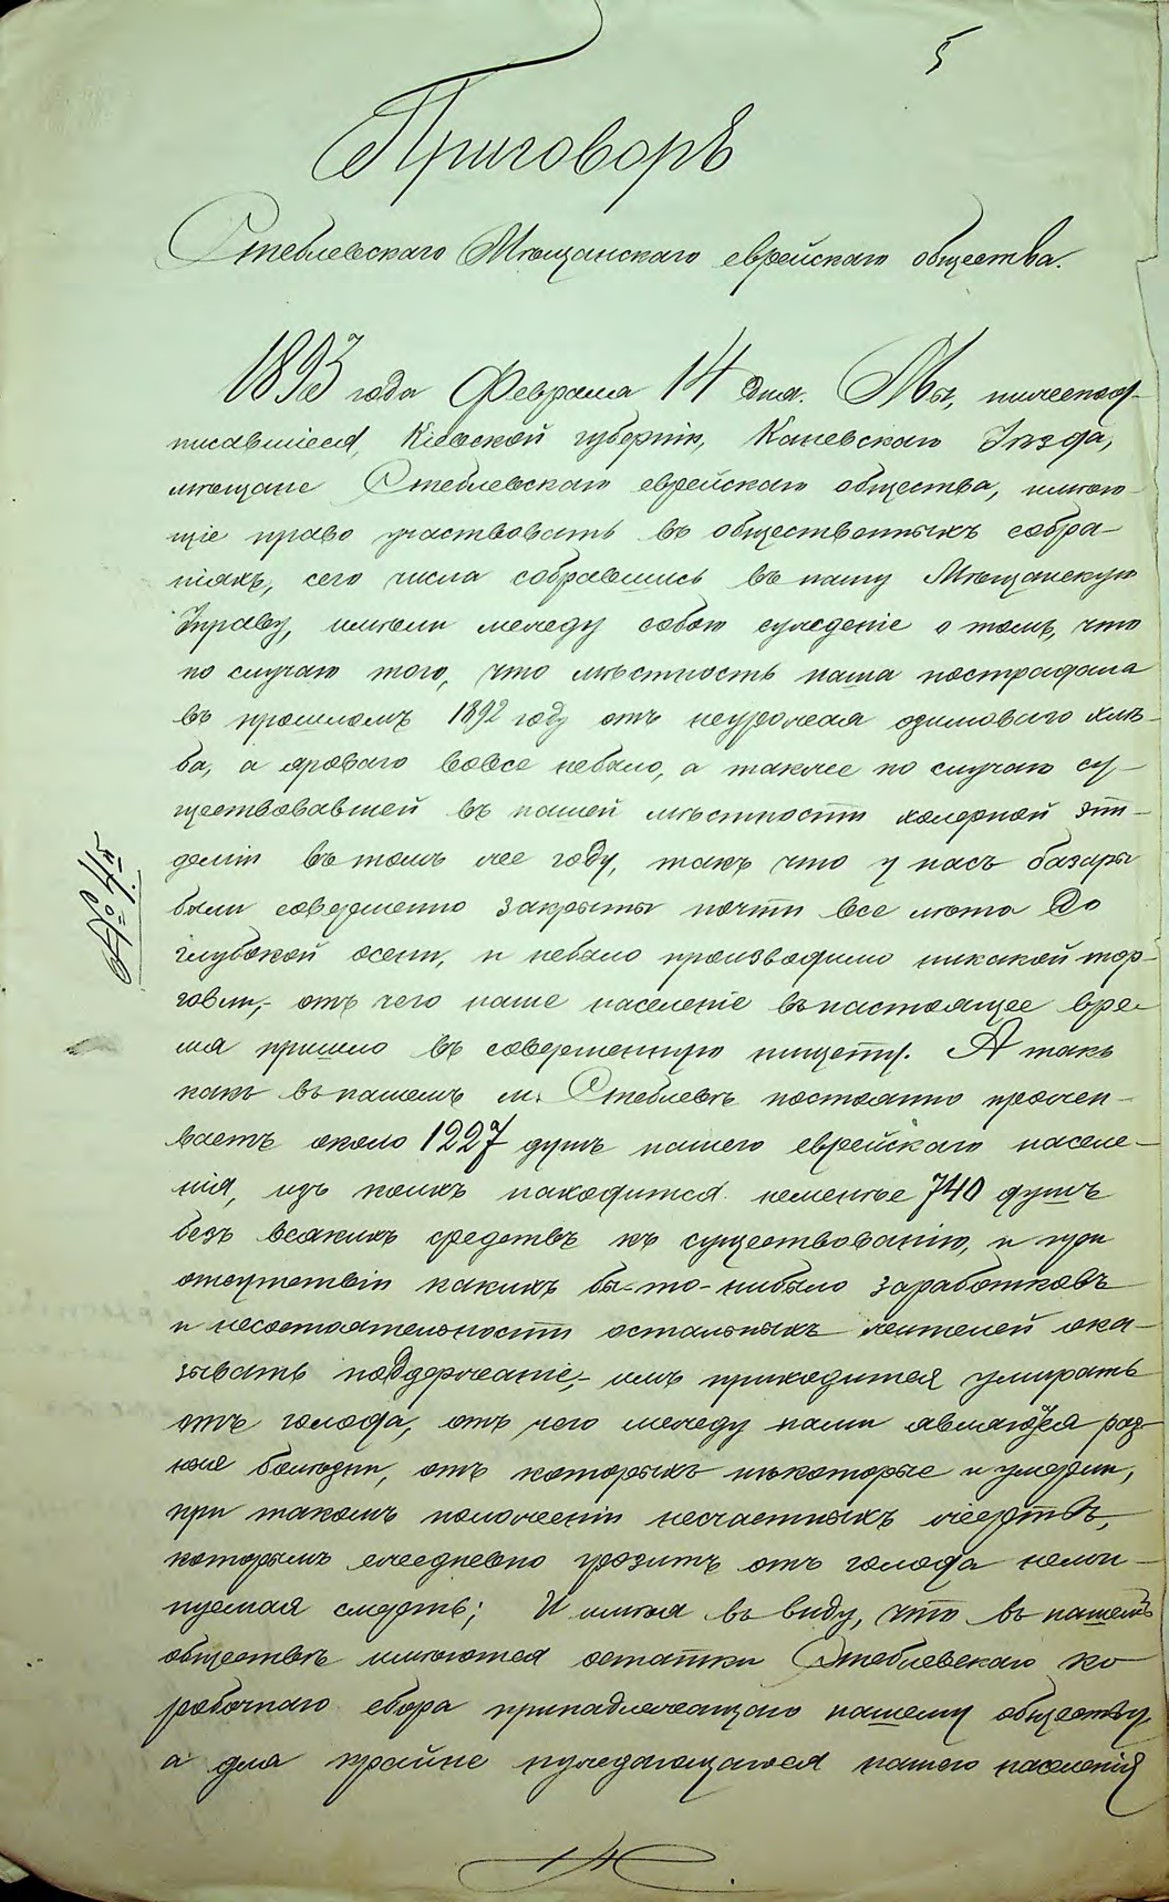 5
Приговоръ
Стеблевскаго Мѣщанскаго еврейскаго общества.
1893 года Февраля 14 дня. Мы, нижепод-
писавшіеся, Кіевской губерніи, Каневскаго Уѣзда,
мѣщане Стеблевскаго еврейскаго общества, имѣю-
щіе право участвовать въ общественныхъ собра-
ніяхъ, сего числа собравшись въ нашу Мѣщанскую
Управу, имѣли между собою сужденіе о томъ, что
по случаю того, что мѣстность наша пострадала
въ прошломъ 1892 году отъ неурожая озимоваго хлѣ-
ба, а яроваго вовсе небыло, а также по случаю су-
ществовавшей въ нашей мѣстности холерной эпи-
деміи въ томъ же году, такъ что у насъ базары
были совершенно закрыты почти все лѣто до
глубокой осени, и небыло производимо никакой тор-
говли,- отъ чего наше населеніе въ настоящее вре-
мя пришло въ совершенную нищету. А такъ
какъ въ нашемъ м. Стеблевѣ постоянно прожи-
ваетъ около 1227 душъ нашего еврейскаго населе-
нія, изъ коихъ находится неменѣе 740 душъ
безъ всякихъ средствъ къ существованію, и при
отсутствіи какихъ бы-то-нибыло заработковъ
и несостоятельности остальныхъ жителей ока-
зывать поддержаніе,- имъ приходится умирать
отъ голода, отъ чего между нами являются раз-
ные болѣзни, отъ которыхъ нѣкоторые и умерли,
при такомъ положеніи несчастныхъ жертвъ,
которымъ ежедневно грозитъ отъ голода неми-
нуемая смерть; И имѣя въ виду, что въ нашемъ
обществѣ имѣются остатки Стеблевскаго ко-
робочнаго сбора принадлежащаго нашему обществу,
а для крайне нуждающагося нашего населенія